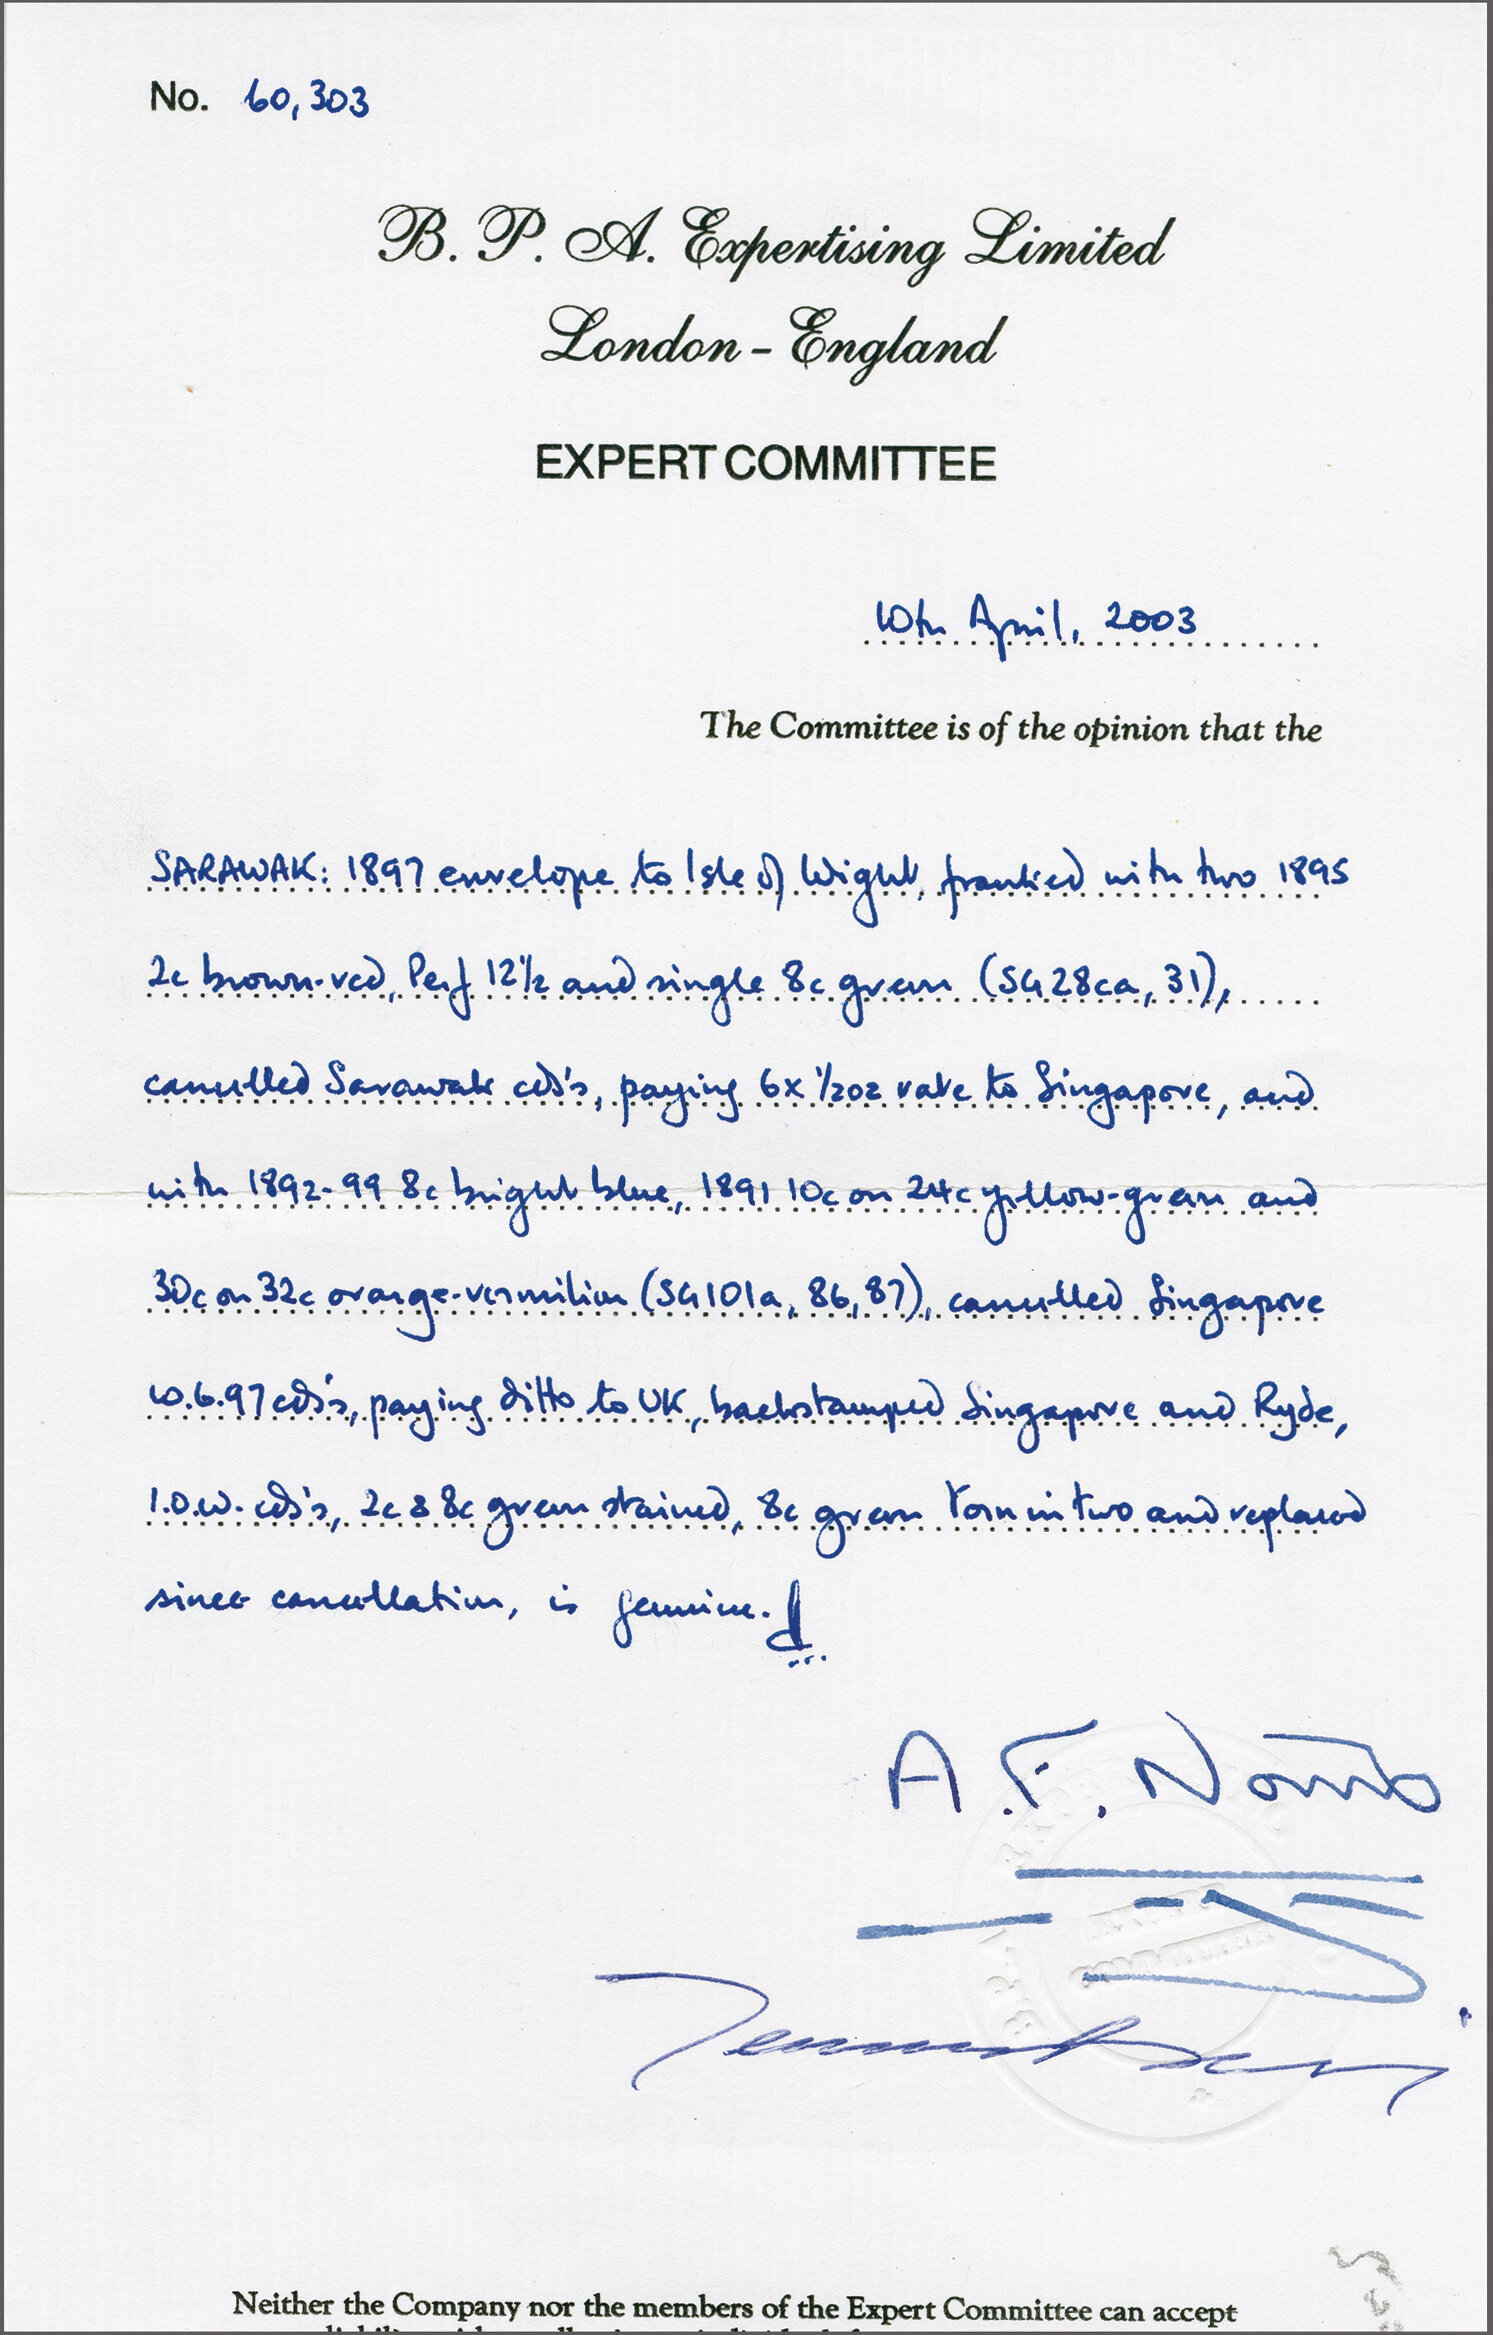 No. 60,303
B. P. A. Expertising Limited
London - England
EXPERT COMMITTEE
10th April, 2003
The Committee is of the opinion that the
SARAWAK: 1897 envelope to Isle of Wight, franked with two 1895
2c brown-red, Perf 12½ and single 8c green (SG28ca, 31),
cancelled Sarawak cds's, paying 6x ½oz rate to Singapore, and
with 1892-99 8c bright blue, 1891 10c on 24c yellow-green and
30c on 32c orange-vermilion (SG101a, 86, 87), cancelled Singapore
10.6.97 cds's, paying ditto to UK, backstamped Singapore and Ryde,
I.O.W. cds's, 2c & 8c green stained, 8c green torn in two and replaced
since cancellation, is genuine.
A. F. 
Neither the Company nor the members of the Expert Committee can accept